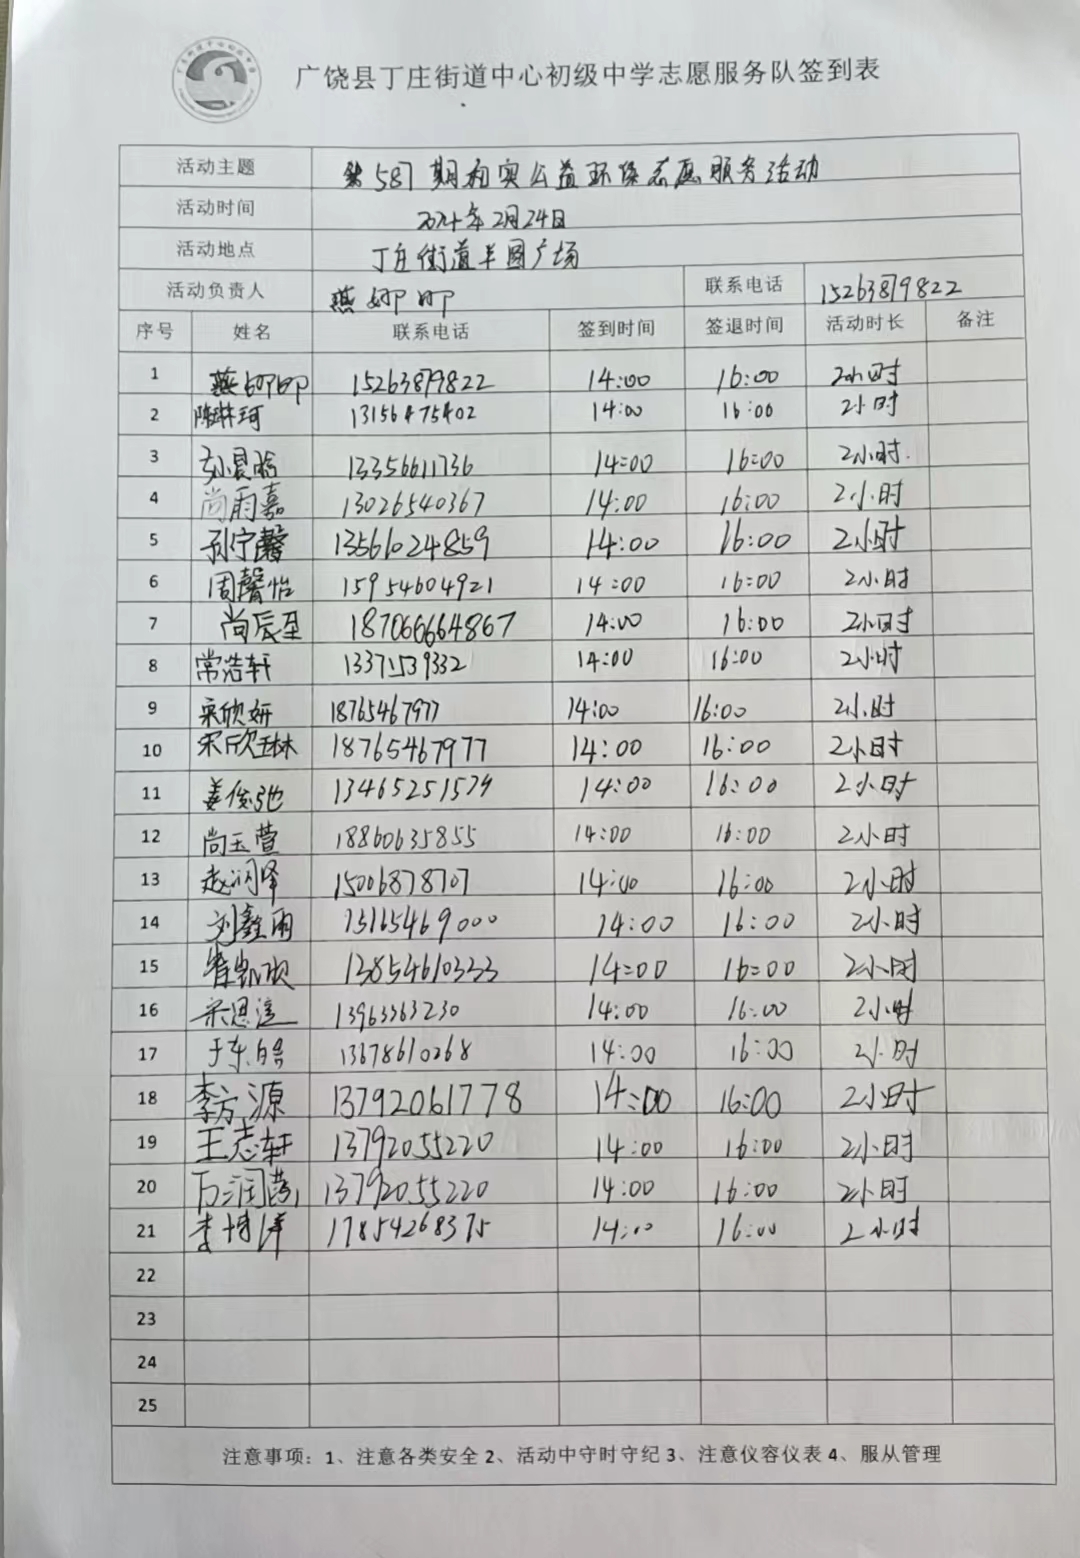 广饶县丁庄街道中心初级中学志愿服务队签到表
活动主题 第587期和奥公益环保志愿服务活动
活动时间 2024年2月24日
活动地点 丁庄街道半园广场
活动负责人 燕卯卯 联系电话 15263879822
序号 姓名 联系电话 签到时间 签退时间 活动时长 备注
1 15263879822 14:00 16:00 2小时
2 陈琳珂 13156475402 14:00 16:00 2小时
3 13356611736 14:00 16:00 2小时
4 尚雨嘉 13026540367 14:00 16:00 2小时
5 孙宁馨 13561024859 14:00 16:00 2小时
6 周馨怡 15954604921 14:00 16:00 2小时
7 尚辰圣 187066664867 14:00 16:00 2小时
8 常浩轩 13371539332 14:00 16:00 2小时
9 宋欣妍 18765467977 14:00 16:00 2小时
10 宋欣琳 18765467977 14:00 16:00 2小时
11 姜俊弛 13465251579 14:00 16:00 2小时
12 尚玉萱 18860635855 14:00 16:00 2小时
13 赵润泽 15006878707 14:00 16:00 2小时
14 刘鑫雨 15165469000 14:00 16:00 2小时
15 13854610333 14:00 16:00 2小时
16 宋恩滢 13963363230 14:00 16:00 2小时
17 于东皓 13678610268 14:00 16:00 2小时
18 李方源 13792061778 14:00 16:00 2小时
19 王志轩 13792055220 14:00 16:00 2小时
20 13792055220 14:00 16:00 2小时
21 李博洋 17854268375 14:00 16:00 2小时
22
23
24
25
注意事项：1、注意各类安全 2、活动中守时守纪 3、注意仪容仪表 4、服从管理